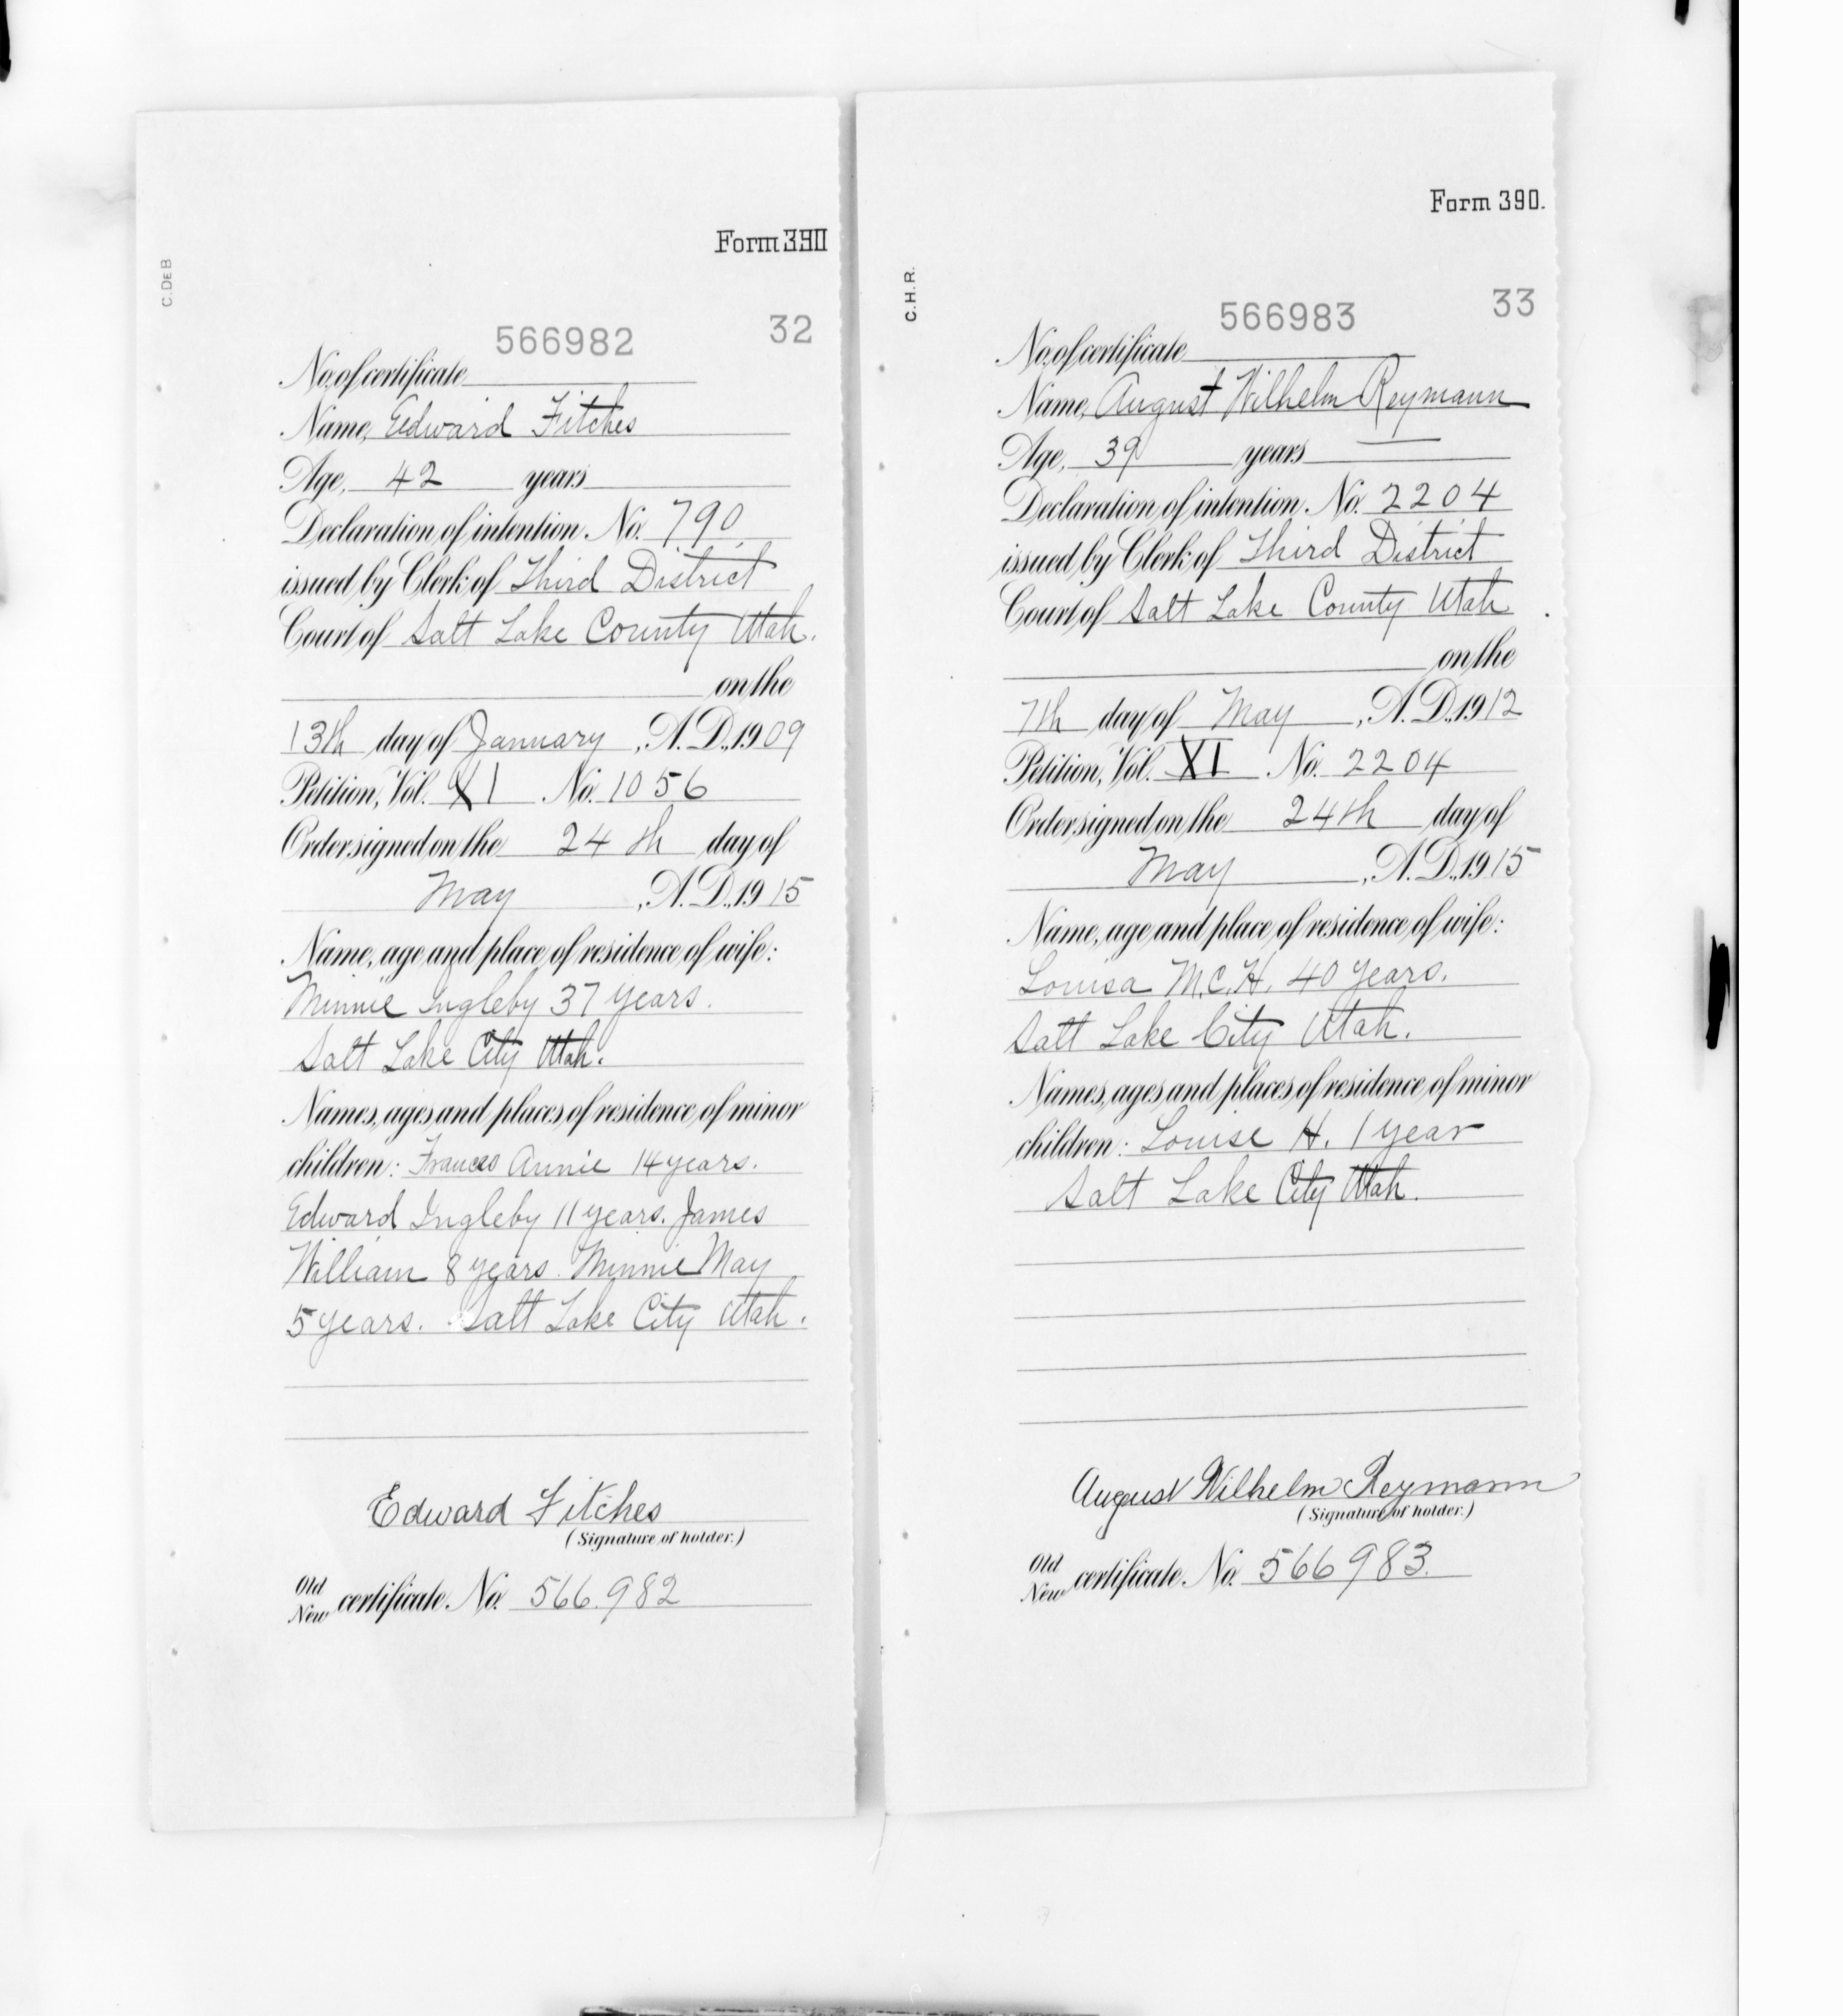 Form 390
C.DEB
566982 32
No. of certificate
Name, Edward Fitches
Age, 42 years
Declaration of intention No. 790
issued by Clerk of Third District
Court of Salt Lake County Utah.
on the
13th day of January, A.D., 1909
Petition, Vol. XI No. 1056
Order signed on the 24th day of
May, A.D., 1915
Name, age and place of residence of wife:
Minnie Ingleby 37 years.
Salt Lake City Utah.
Names, ages and places of residence of minor
children: Frances Annie 14 years.
Edward Ingleby 11 years. James
William 8 years. Minnie May
5 years. Salt Lake City Utah.
Edward Fitches
(Signature of holder.)
Old
New certificate No. 566.982
Form 390.
C.H.R.
566983 33
No. of certificate
Name, August Wilhelm Reymann
Age, 39 years
Declaration of intention No. 2204
issued by Clerk of Third District
Court of Salt Lake County Utah
on the
7th day of May, A.D., 1912
Petition, Vol. XI No. 2204
Order signed on the 24th day of
May, A.D., 1915
Name, age and place of residence of wife:
Louisa M.C.H. 40 years.
Salt Lake City Utah.
Names, ages and places of residence of minor
children: Louise H. 1 year
Salt Lake City Utah.
August Wilhelm Reymann
(Signature of holder.)
Old
New certificate No. 566983.